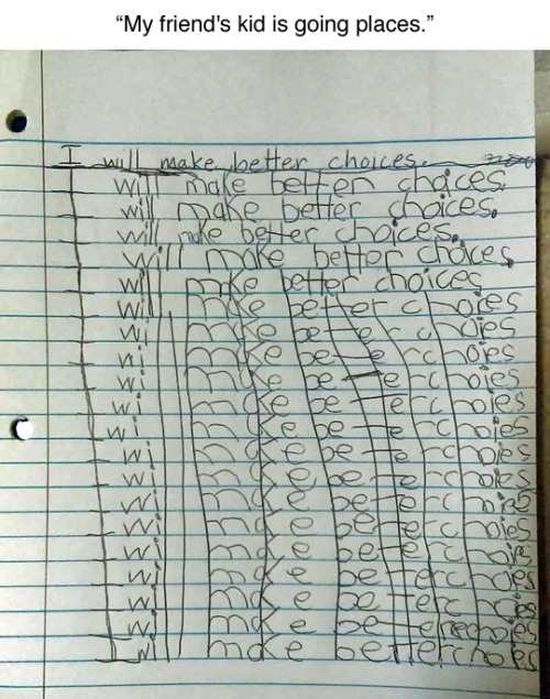 “My friend's kid is going places.”
I will make better choices.
I will make better choices.
I will make better choices.
I will make better choices.
I will make better choices.
I will make better choices
I will make better choices
I will make better choies
I will make better choies
I will make better choies
I will make better choies
I will make better choies
I will make better choies
I will make better choies
I will make better choies
I will make better choies
I will make better choies
I will make better choies
I will make better choies
I will make better choies
I will make better choies